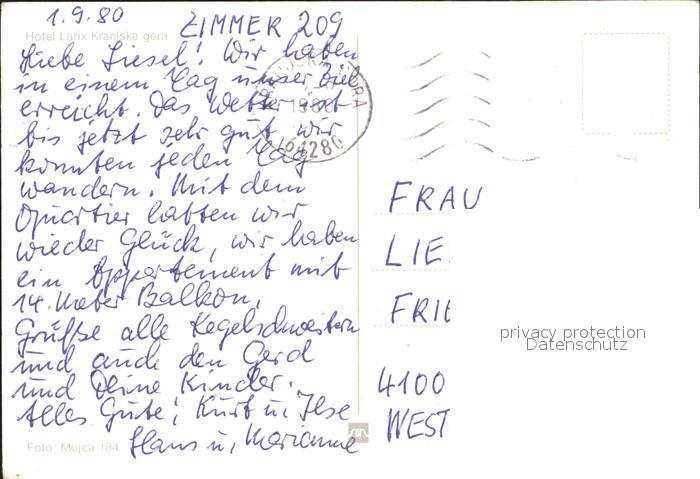 1.9.80 ZIMMER 209
Hotel Larix Kranjska gora
Liebe Liesel! Wir haben
in einem Tag unser Ziel
erreicht. Das Wetter ist
bis jetzt sehr gut wir
konnten jeden Tag
wandern. Mit dem
Quartier hatten wir
wieder Glück, wir haben
ein Appartement mit
14 Meter Balkon.
Grüße alle Kegelschwestern
und auch den Gerd
und Deine Kinder.
Alles Gute! Kurt u. Ilse
Hans u. Marianne
Foto: Mojca 184
64280
FRAU
LIE
FRI
4100
WEST
privacy protection
Datenschutz